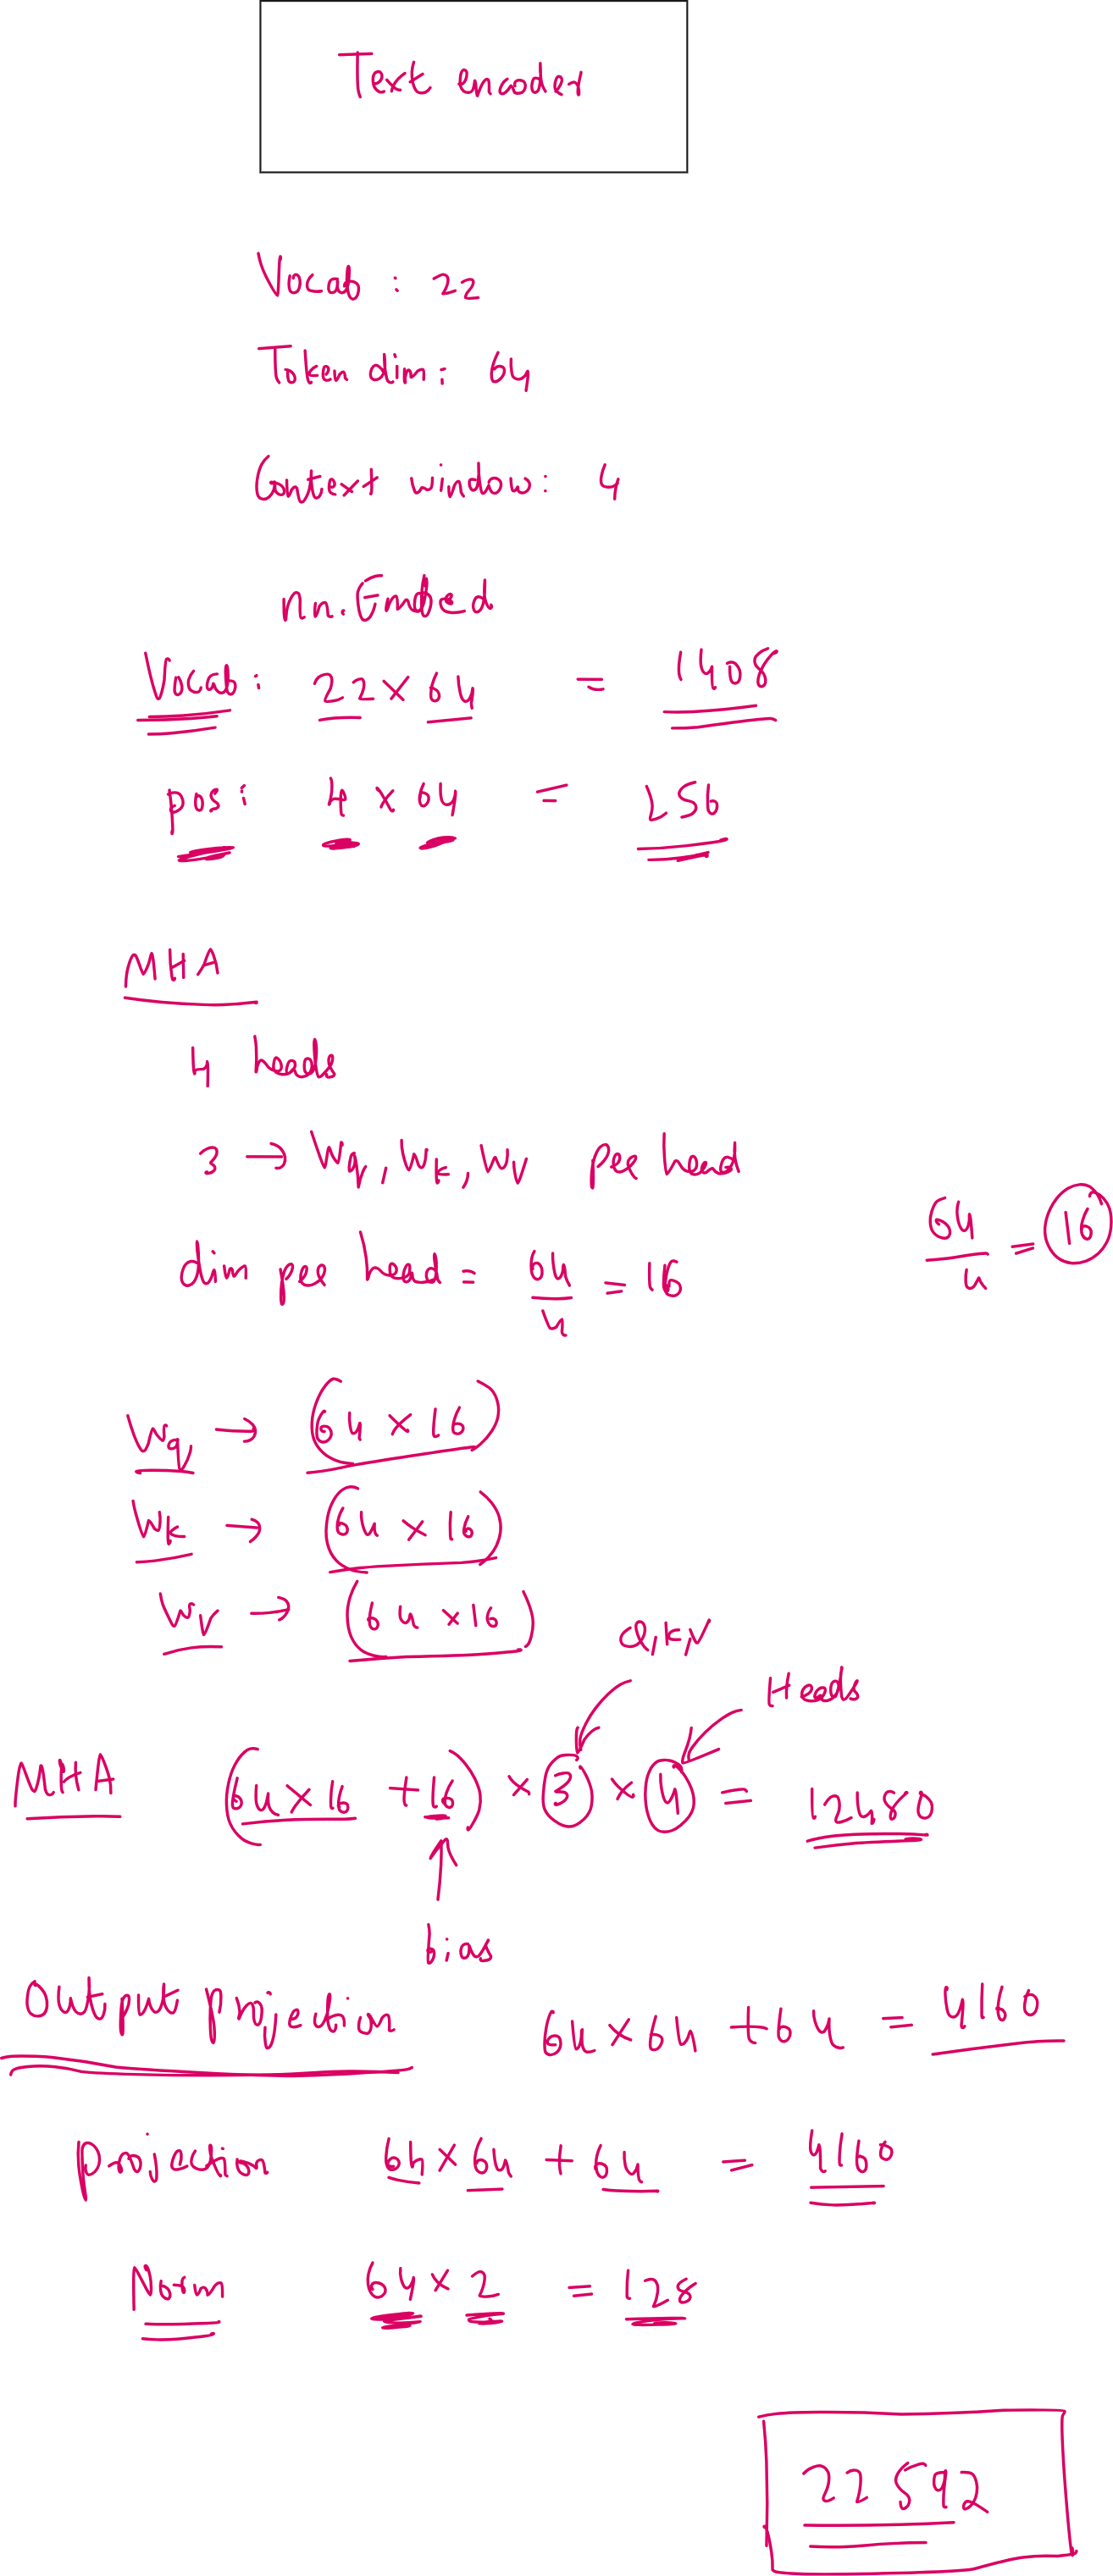 Text encoder
Vocab : 22
Token dim: 64
Context window: 4
nn.Embed
Vocab: 22 × 64 = 1408
pos: 4 × 64 = 256
MHA
4 heads
3 → Wq, Wk, Wv per head
dim per head = 64/4 = 16
64/4 = 16
Wq → (64 × 16)
Wk → (64 × 16)
Wv → (64 × 16)
Q,K,V
Heads
MHA (64 × 16 + 16) × 3 × 4 = 12480
bias
Output projection 64 × 64 + 64 = 4160
Projection 64 × 64 + 64 = 4160
Norm 64 × 2 = 128
22592